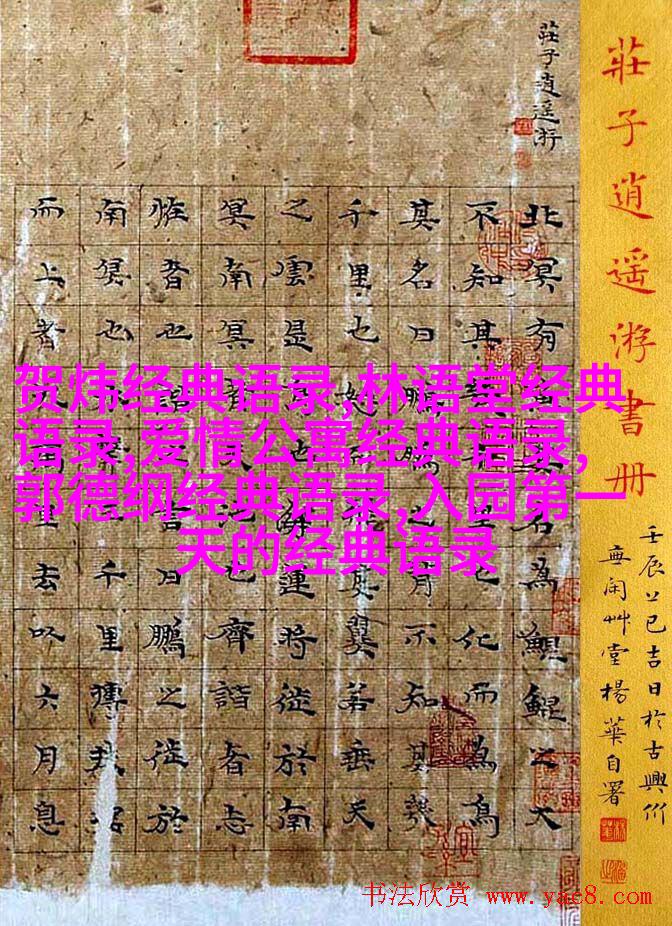 贺炜经典语录,林语堂经典
语录,爱情公寓经典语录,
郭德纲经典语录,入园第一
天的经典语录
莊子逍遥游書册
壬辰上巳吉日於古興
閑艸堂楊華自署
莊子逍遥游
北冥有名為鯤鯤之大
不知其也化而為鳥
其名曰鵬鵬之背不知其幾
千里也怒其翼若垂天
之雲是也海運將徙於南
冥南冥者也齊諧者志
恠者也諧言曰鵬之徙於
南冥也千里摶扶搖
而上者里去以六月息
书法欣赏 www.yac8.com